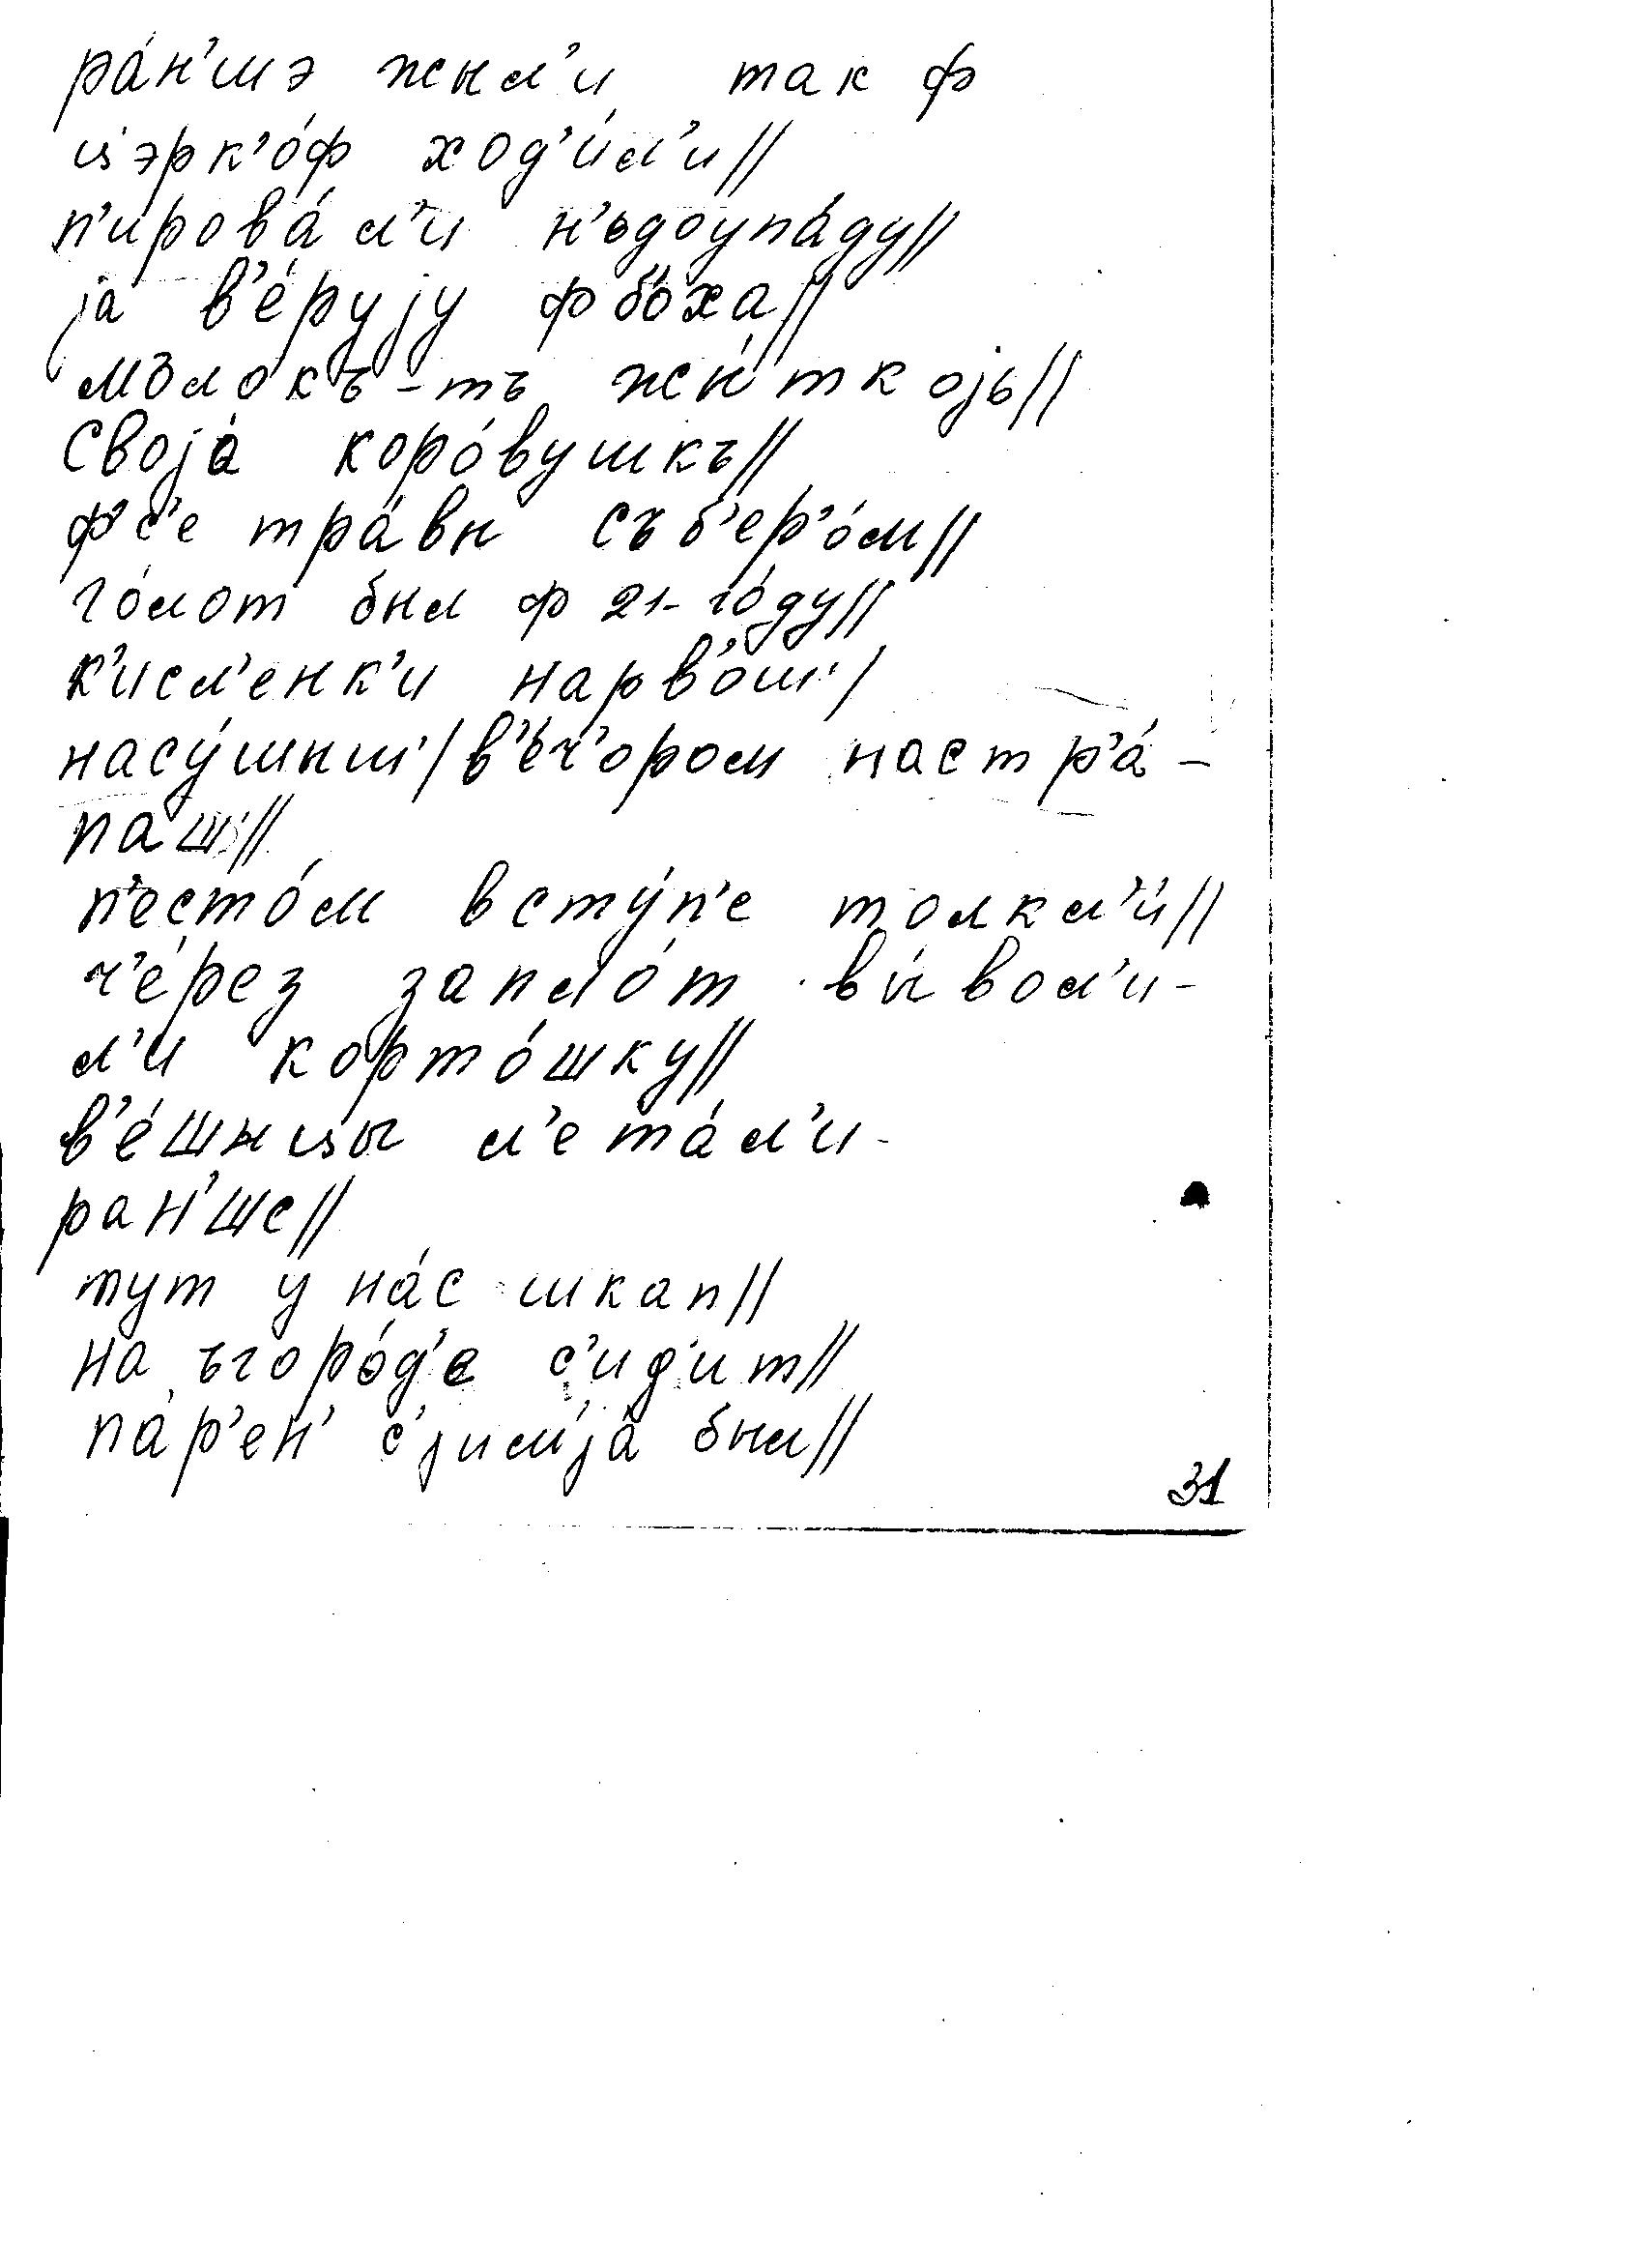 ра́н'шэ жыл'и так ф
цэрк'о́ф ход'и́л'и//
п'ирова́л'и н'ьдоупа́ду//
ја в'е́рују ф бо́ха//
мълокъ-тъ жы́ткојь//
својá коро́вушкъ//
ф'с'е тра́вы съб'ер'о́м//
го́лот был ф 21-го́ду//
к'исл'енк'и нарв'о́ш'/
насу́шыш'/в'е́ч'ором настр'а́-
паш'//
п'есто́м в сту́п'е толкл'и́//
ч'е́рез запло́т вы́вол'и-
л'и корто́шку//
в'е́шыцы л'ета́л'и-
ран'ше//
тут у на́с шкап//
на ъгоро́д'е с'ид'ит//
па́р'ен' с'јим'ја́ был//
31